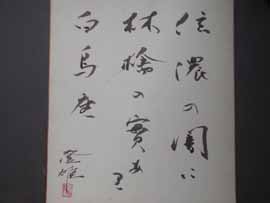 信濃の闇に
林檎の實あり
白鳥座